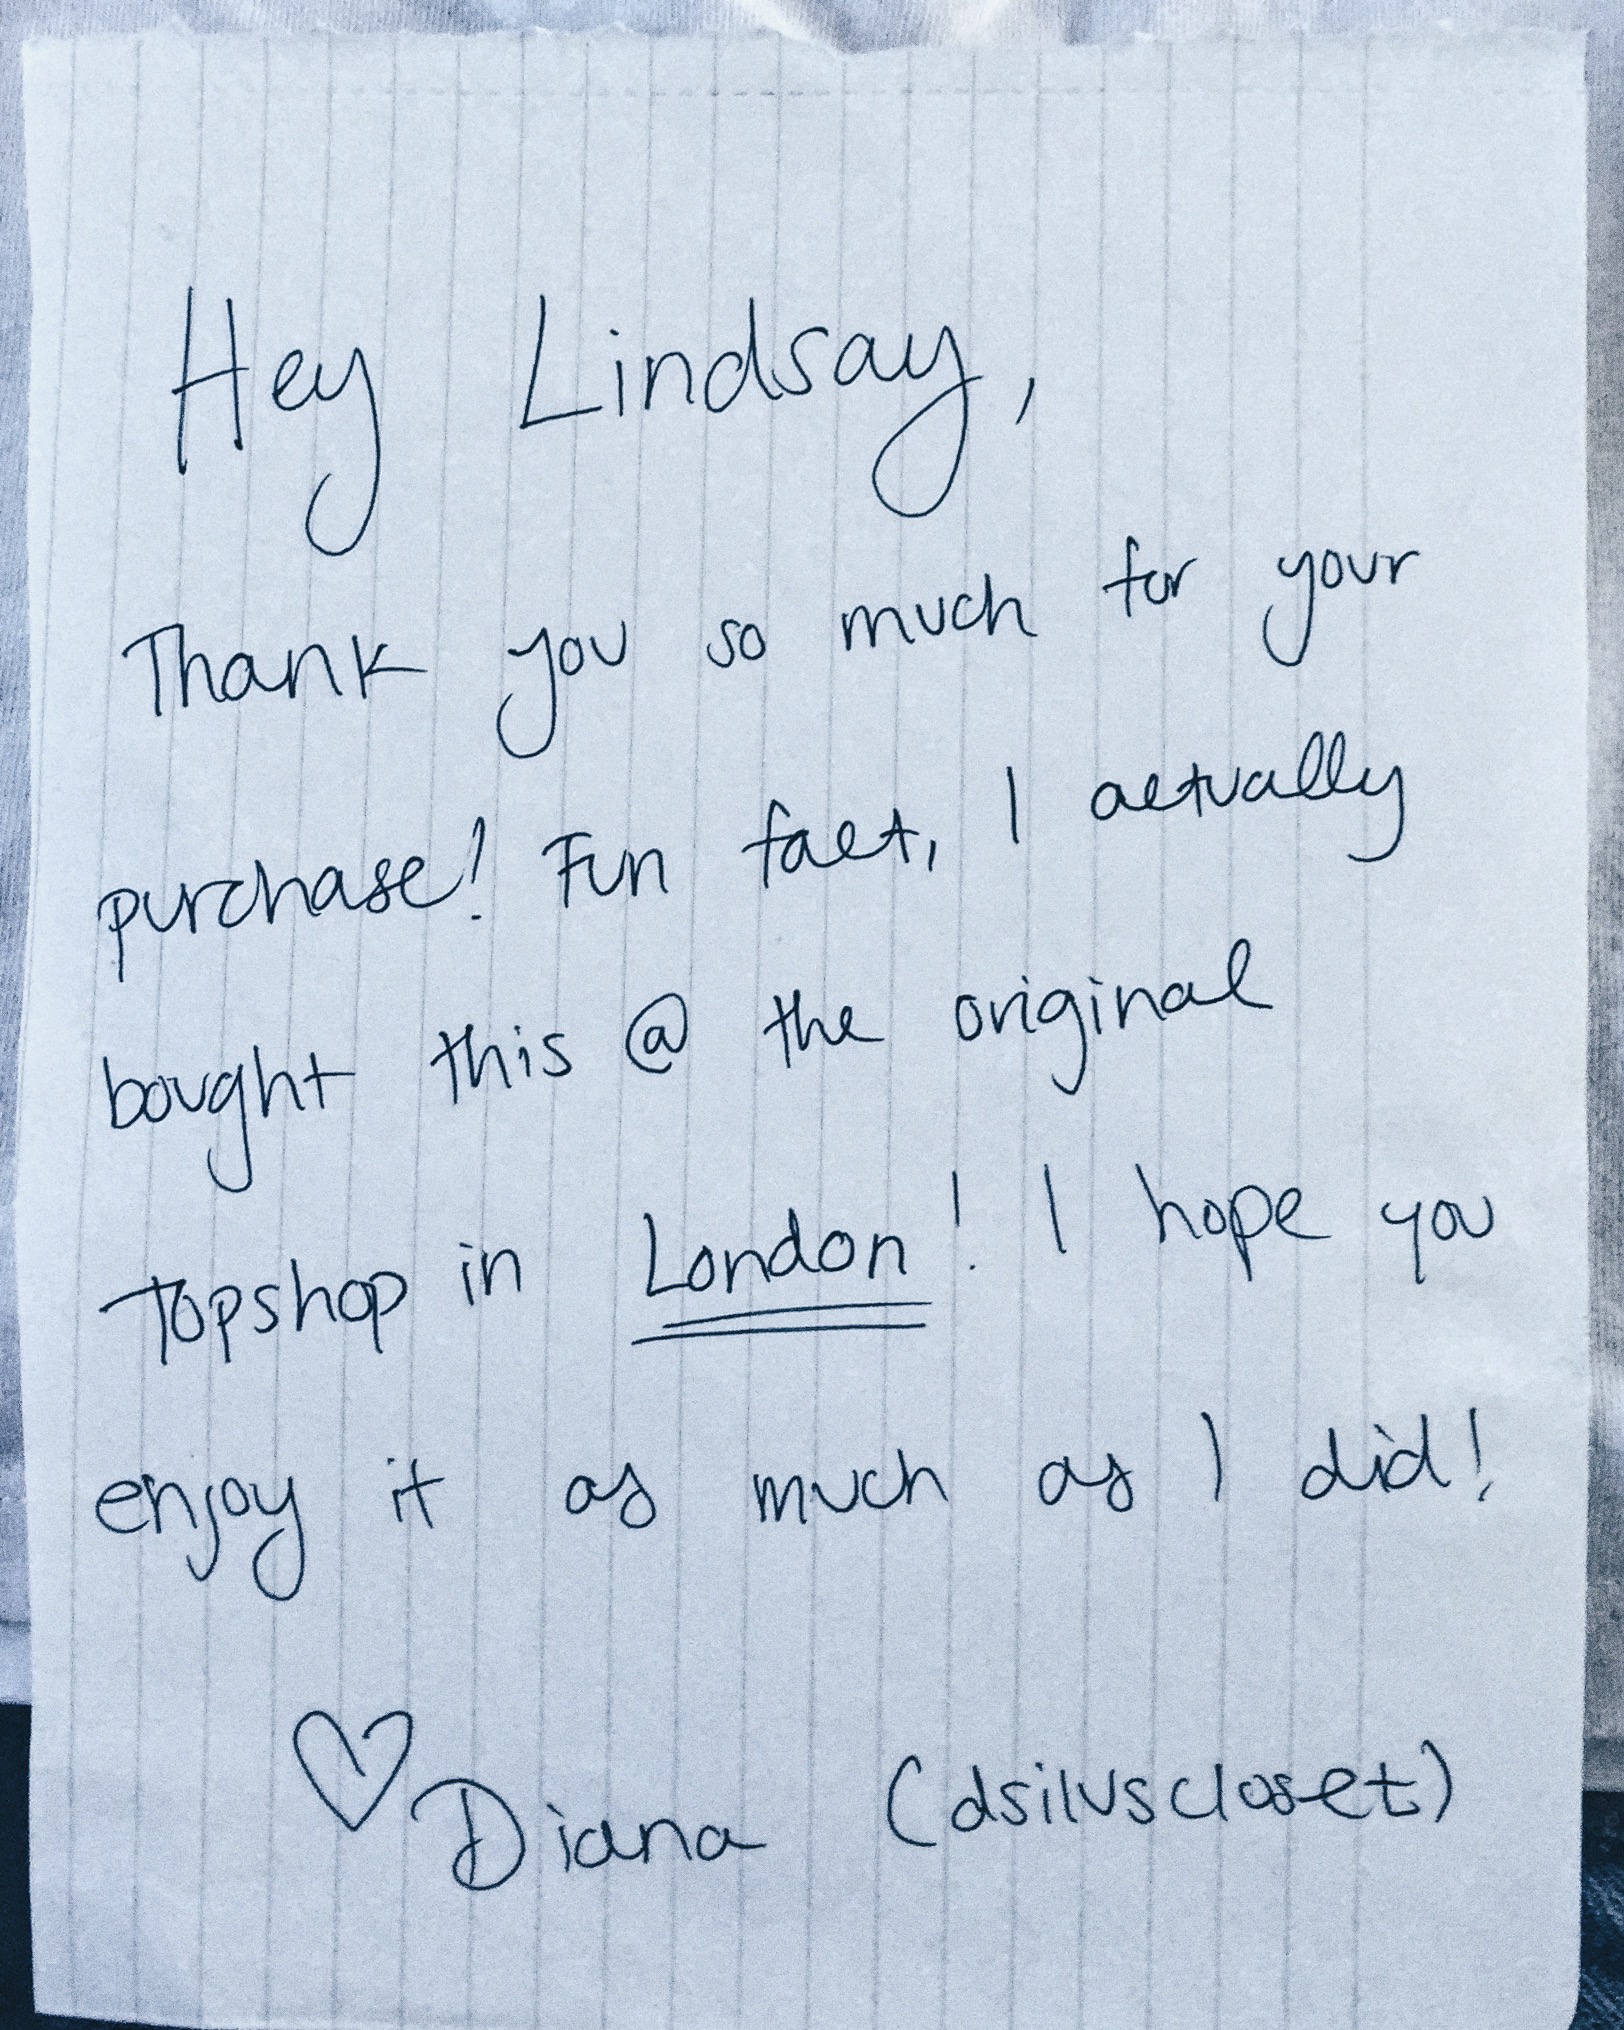 Hey Lindsay,
Thank you so much for your
purchase! Fun fact, I actually
bought this @ the original
Topshop in London! I hope you
enjoy it as much as I did!
♡ Diana (dsilvscloset)